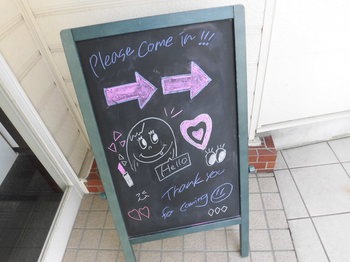 Please come in !!!
Hello
Thank you
for coming